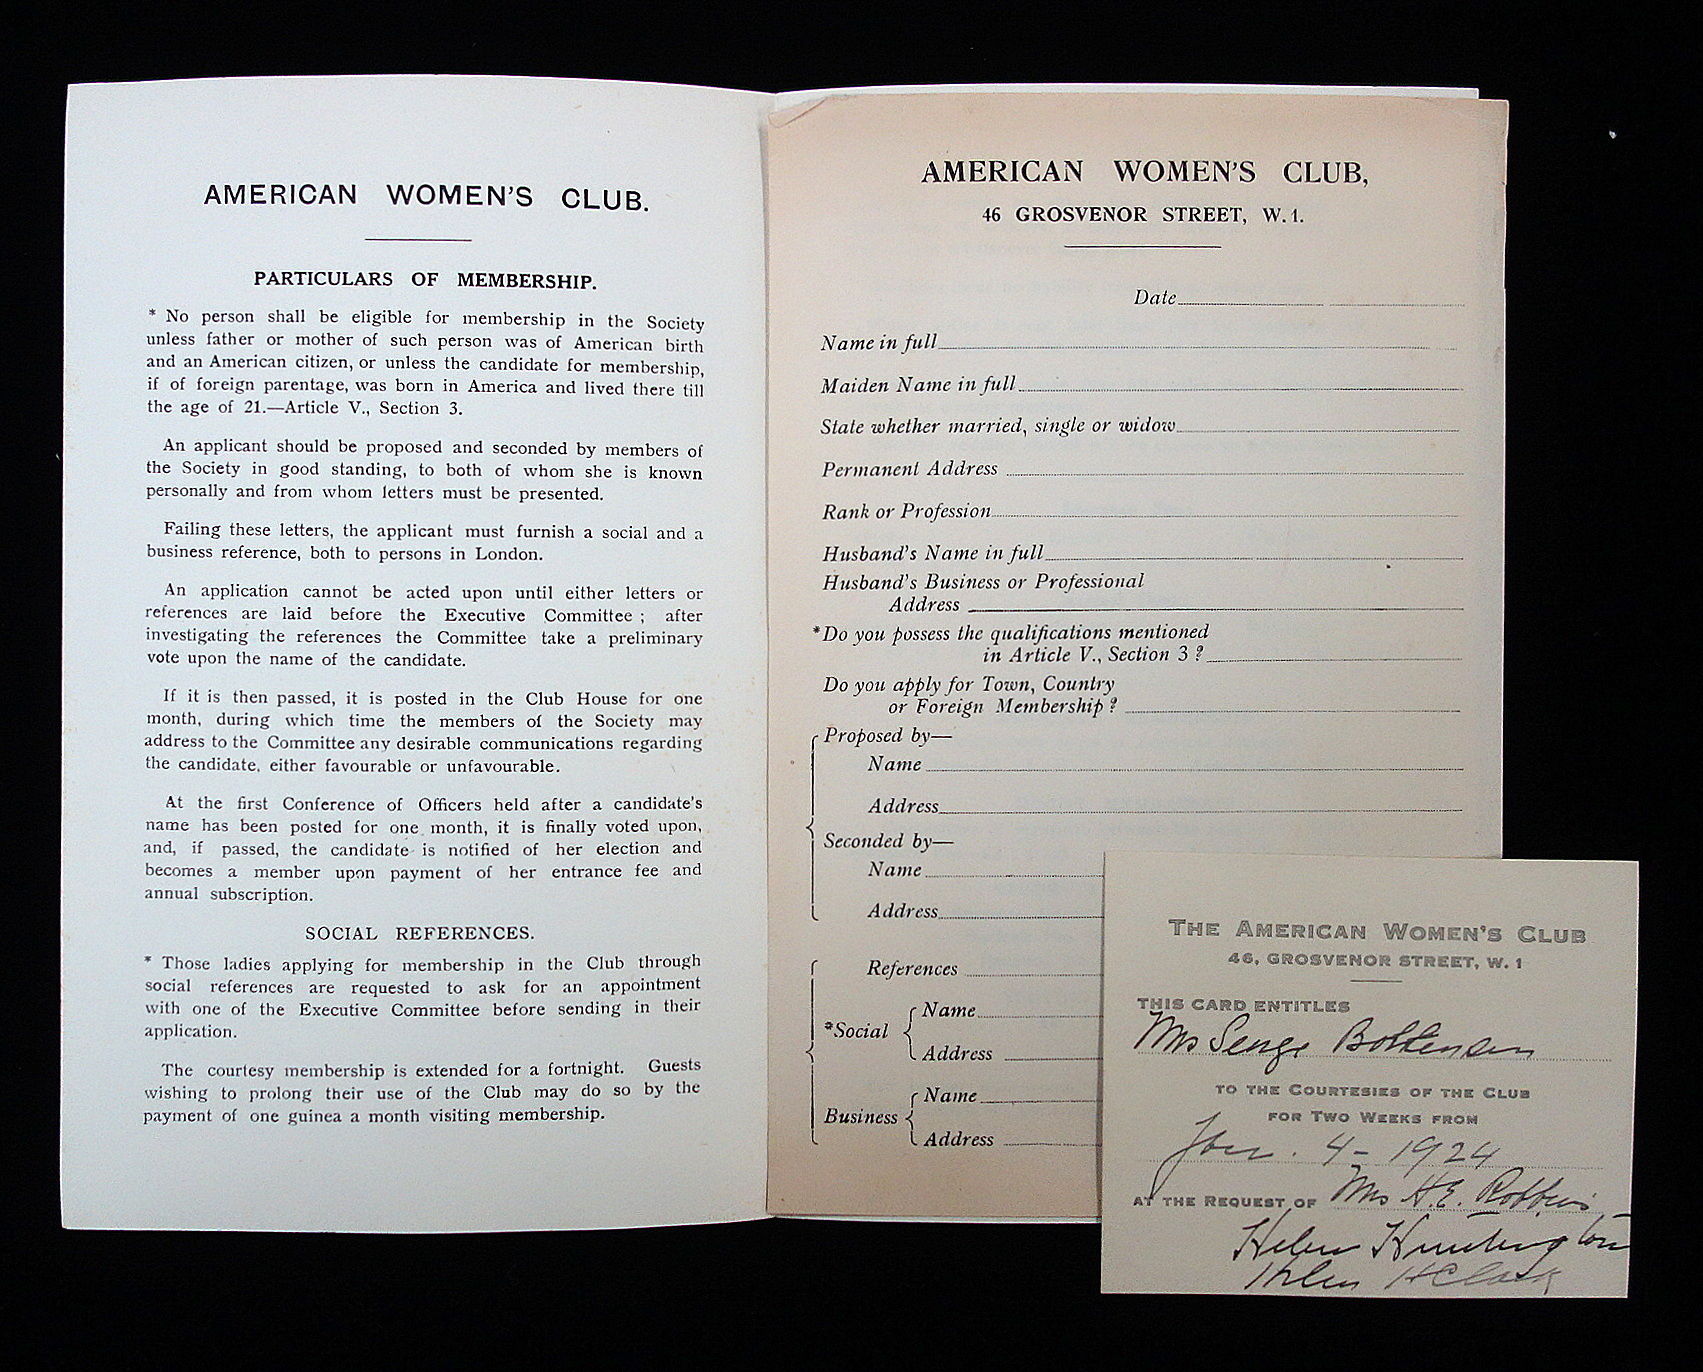 AMERICAN WOMEN'S CLUB.
PARTICULARS OF MEMBERSHIP.
* No person shall be eligible for membership in the Society
unless father or mother of such person was of American birth
and an American citizen, or unless the candidate for membership,
if of foreign parentage, was born in America and lived there till
the age of 21.—Article V., Section 3.
An applicant should be proposed and seconded by members of
the Society in good standing, to both of whom she is known
personally and from whom letters must be presented.
Failing these letters, the applicant must furnish a social and a
business reference, both to persons in London.
An application cannot be acted upon until either letters or
references are laid before the Executive Committee ; after
investigating the references the Committee take a preliminary
vote upon the name of the candidate.
If it is then passed, it is posted in the Club House for one
month, during which time the members of the Society may
address to the Committee any desirable communications regarding
the candidate, either favourable or unfavourable.
At the first Conference of Officers held after a candidate's
name has been posted for one month, it is finally voted upon,
and, if passed, the candidate is notified of her election and
becomes a member upon payment of her entrance fee and
annual subscription.
SOCIAL REFERENCES.
* Those ladies applying for membership in the Club through
social references are requested to ask for an appointment
with one of the Executive Committee before sending in their
application.
The courtesy membership is extended for a fortnight. Guests
wishing to prolong their use of the Club may do so by the
payment of one guinea a month visiting membership.
AMERICAN WOMEN'S CLUB,
46 GROSVENOR STREET, W.1.
Date
Name in full
Maiden Name in full
State whether married, single or widow
Permanent Address
Rank or Profession
Husband's Name in full
Husband's Business or Professional
Address
*Do you possess the qualifications mentioned
in Article V., Section 3 ?
Do you apply for Town, Country
or Foreign Membership ?
Proposed by—
Name
Address
Seconded by—
Name
Address
References
*Social
Name
Address
Business
Name
Address
THE AMERICAN WOMEN'S CLUB
46, GROSVENOR STREET, W. 1
THIS CARD ENTITLES
Mrs Serge
TO THE COURTESIES OF THE CLUB
FOR TWO WEEKS FROM
Jan. 4 - 1924
AT THE REQUEST OF Mrs H.E. Robbins
Helen Huntington
Helen H Clark